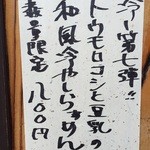 今〜第七弾!!
トウモロコシと豆乳の
和風冷やしらぁめん
数量限定 1200円